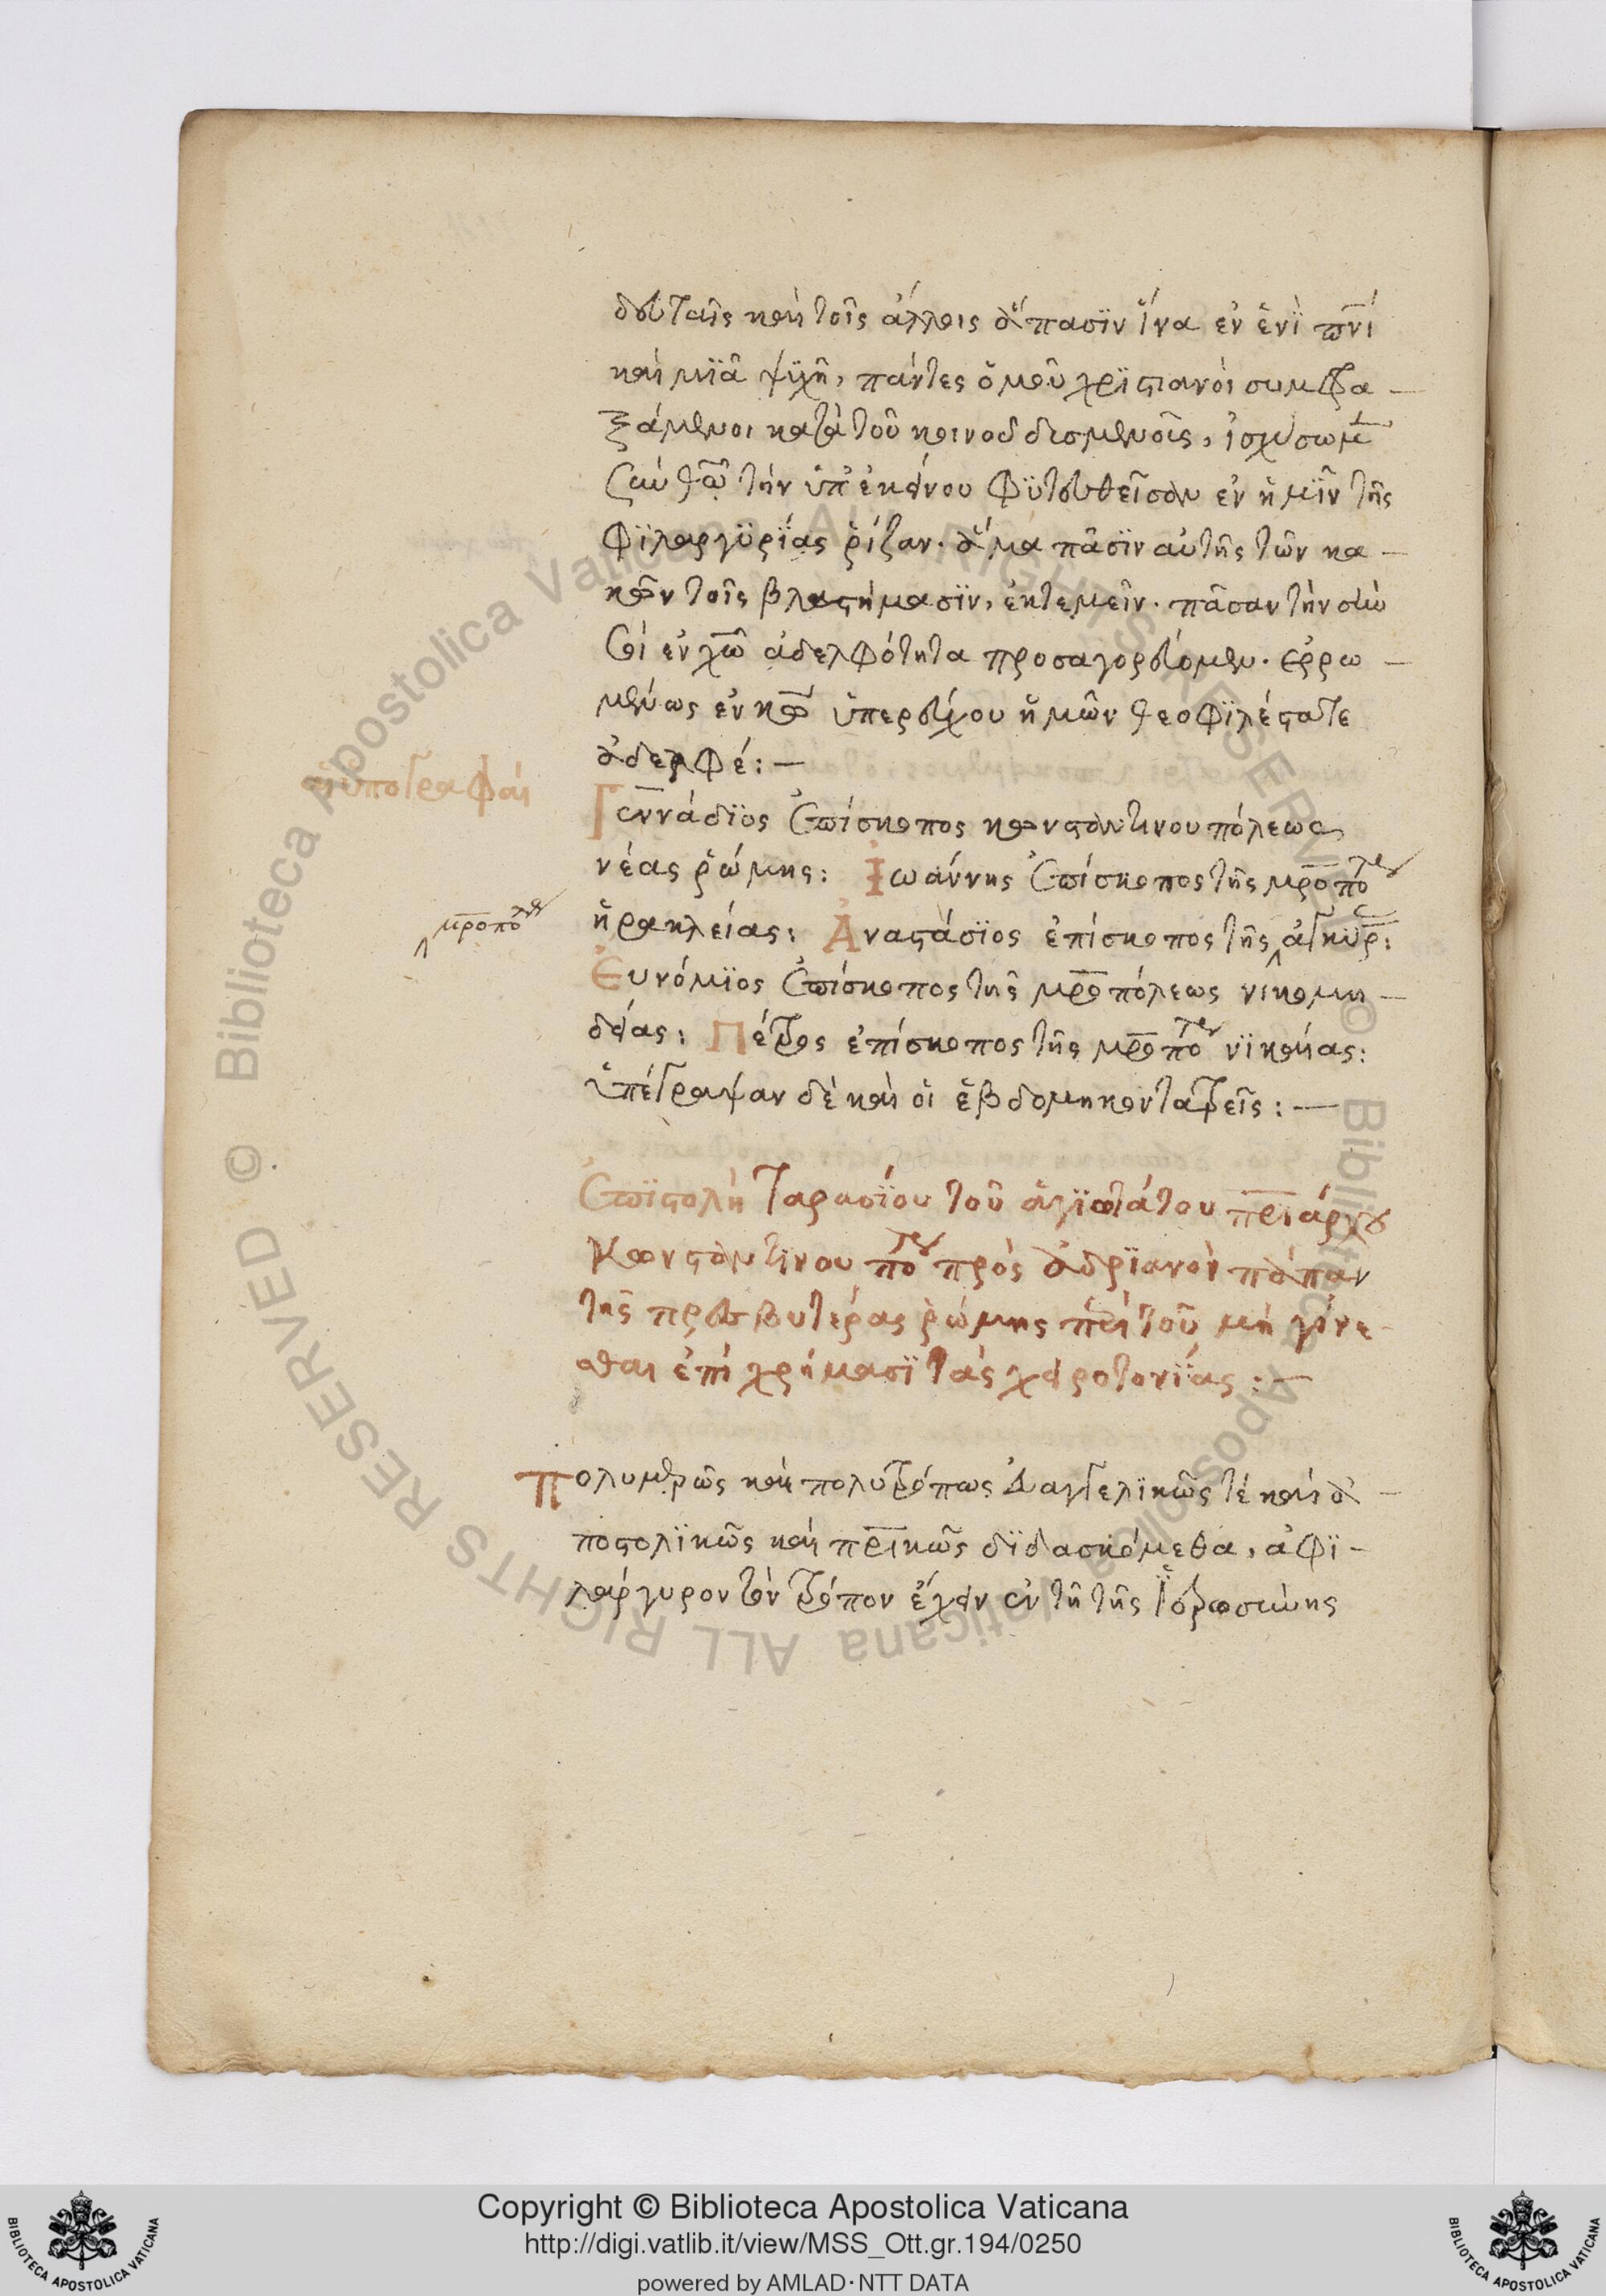 δευταῖς καὶ τοῖς ἄλλοις ἅπασϊν ἵνα ἐν ἑνϊ πνί
καὶ μϊᾶ ψυχῆ, πάντες ὁμοῦ χρϊστιανοὶ συμφρα-
ξάμενοι κατὰ τοῦ κοινοῦ δυσμενοῦς, ἰσχύσωμεν
σὺν θῶ τὴν ὑπ' ἐκείνου φϋτευθεῖσαν ἐν ἡμῖν τῆς
φϊλαργϋρίας ῥίζαν. ἅμα πᾶσϊν αὐτῆς τῶν κα-
κῶν τοῖς βλαστήμασϊν, ἐκτεμεῖν. πᾶσαν τὴν σὺν
σοὶ ἐν χῶ ἀδελφότητα προσαγορεύομεν. ἐρρω-
μένως ἐν κῶ ὑπερεύχου ἡμῶν θεοφϊλέστατε
ἀδελφέ:—
αἱ ὑπογραφαί
Γεννάδϊος ἐπίσκοπος κωνσταντινουπόλεως
νέας ῥώμης: Ἰωάννης ἐπίσκοπος τῆς μροπόλεως
ἡρακλείας: Ἀναστάσϊος ἐπίσκοπος τῆς ἀγκύρ:
μροπόλεως
Εὐνόμϊος ἐπίσκοπος τῆς μροπόλεως νικομη-
δείας: Πέτρος ἐπίσκοπος τῆς μροπόλεως νϊκαίας:
ὑπέγραψαν δὲ καὶ οἱ ἑβδομηκοντατρεῖς:—
Ἐπϊστολὴ Ταρασΐου τοῦ ἁγϊωτάτου πριάρχου
Κωνσταντινουπόλεως πρὸς ἀδρϊανὸν πάπαν
τῆς πρεσβυτέρας ῥώμης περὶ τοῦ μὴ γίνε-
σθαι ἐπὶ χρήμασϊ τὰς χειροτονΐας:—
Πολυμερῶς καὶ πολυτρόπως εὐαγγελϊκῶς τὲ καὶ ἀ-
ποστολϊκῶς καὶ πρικῶς δϊδασκόμεθα, ἀφϊ-
λάργυρον τὸν τρόπον ἔχειν ἐν τῆ τῆς ἱερωσύνης
Copyright © Biblioteca Apostolica Vaticana
http://digi.vatlib.it/view/MSS_Ott.gr.194/0250
powered by AMLAD·NTT DATA